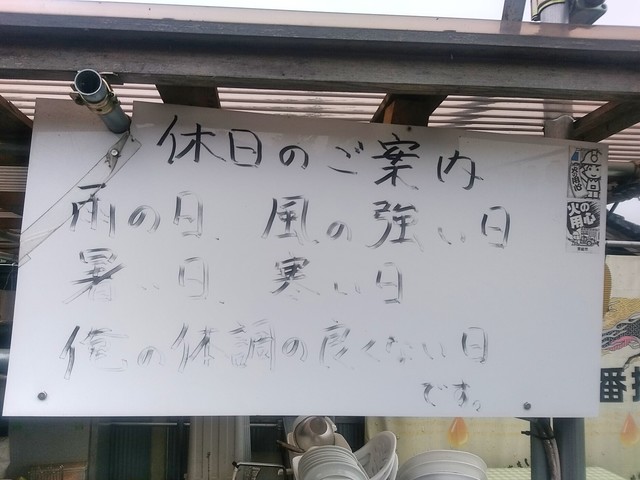 休日のご案内
雨の日、風の強い日
暑い日、寒い日
俺の体調の良くない日
です。
火の用心
番